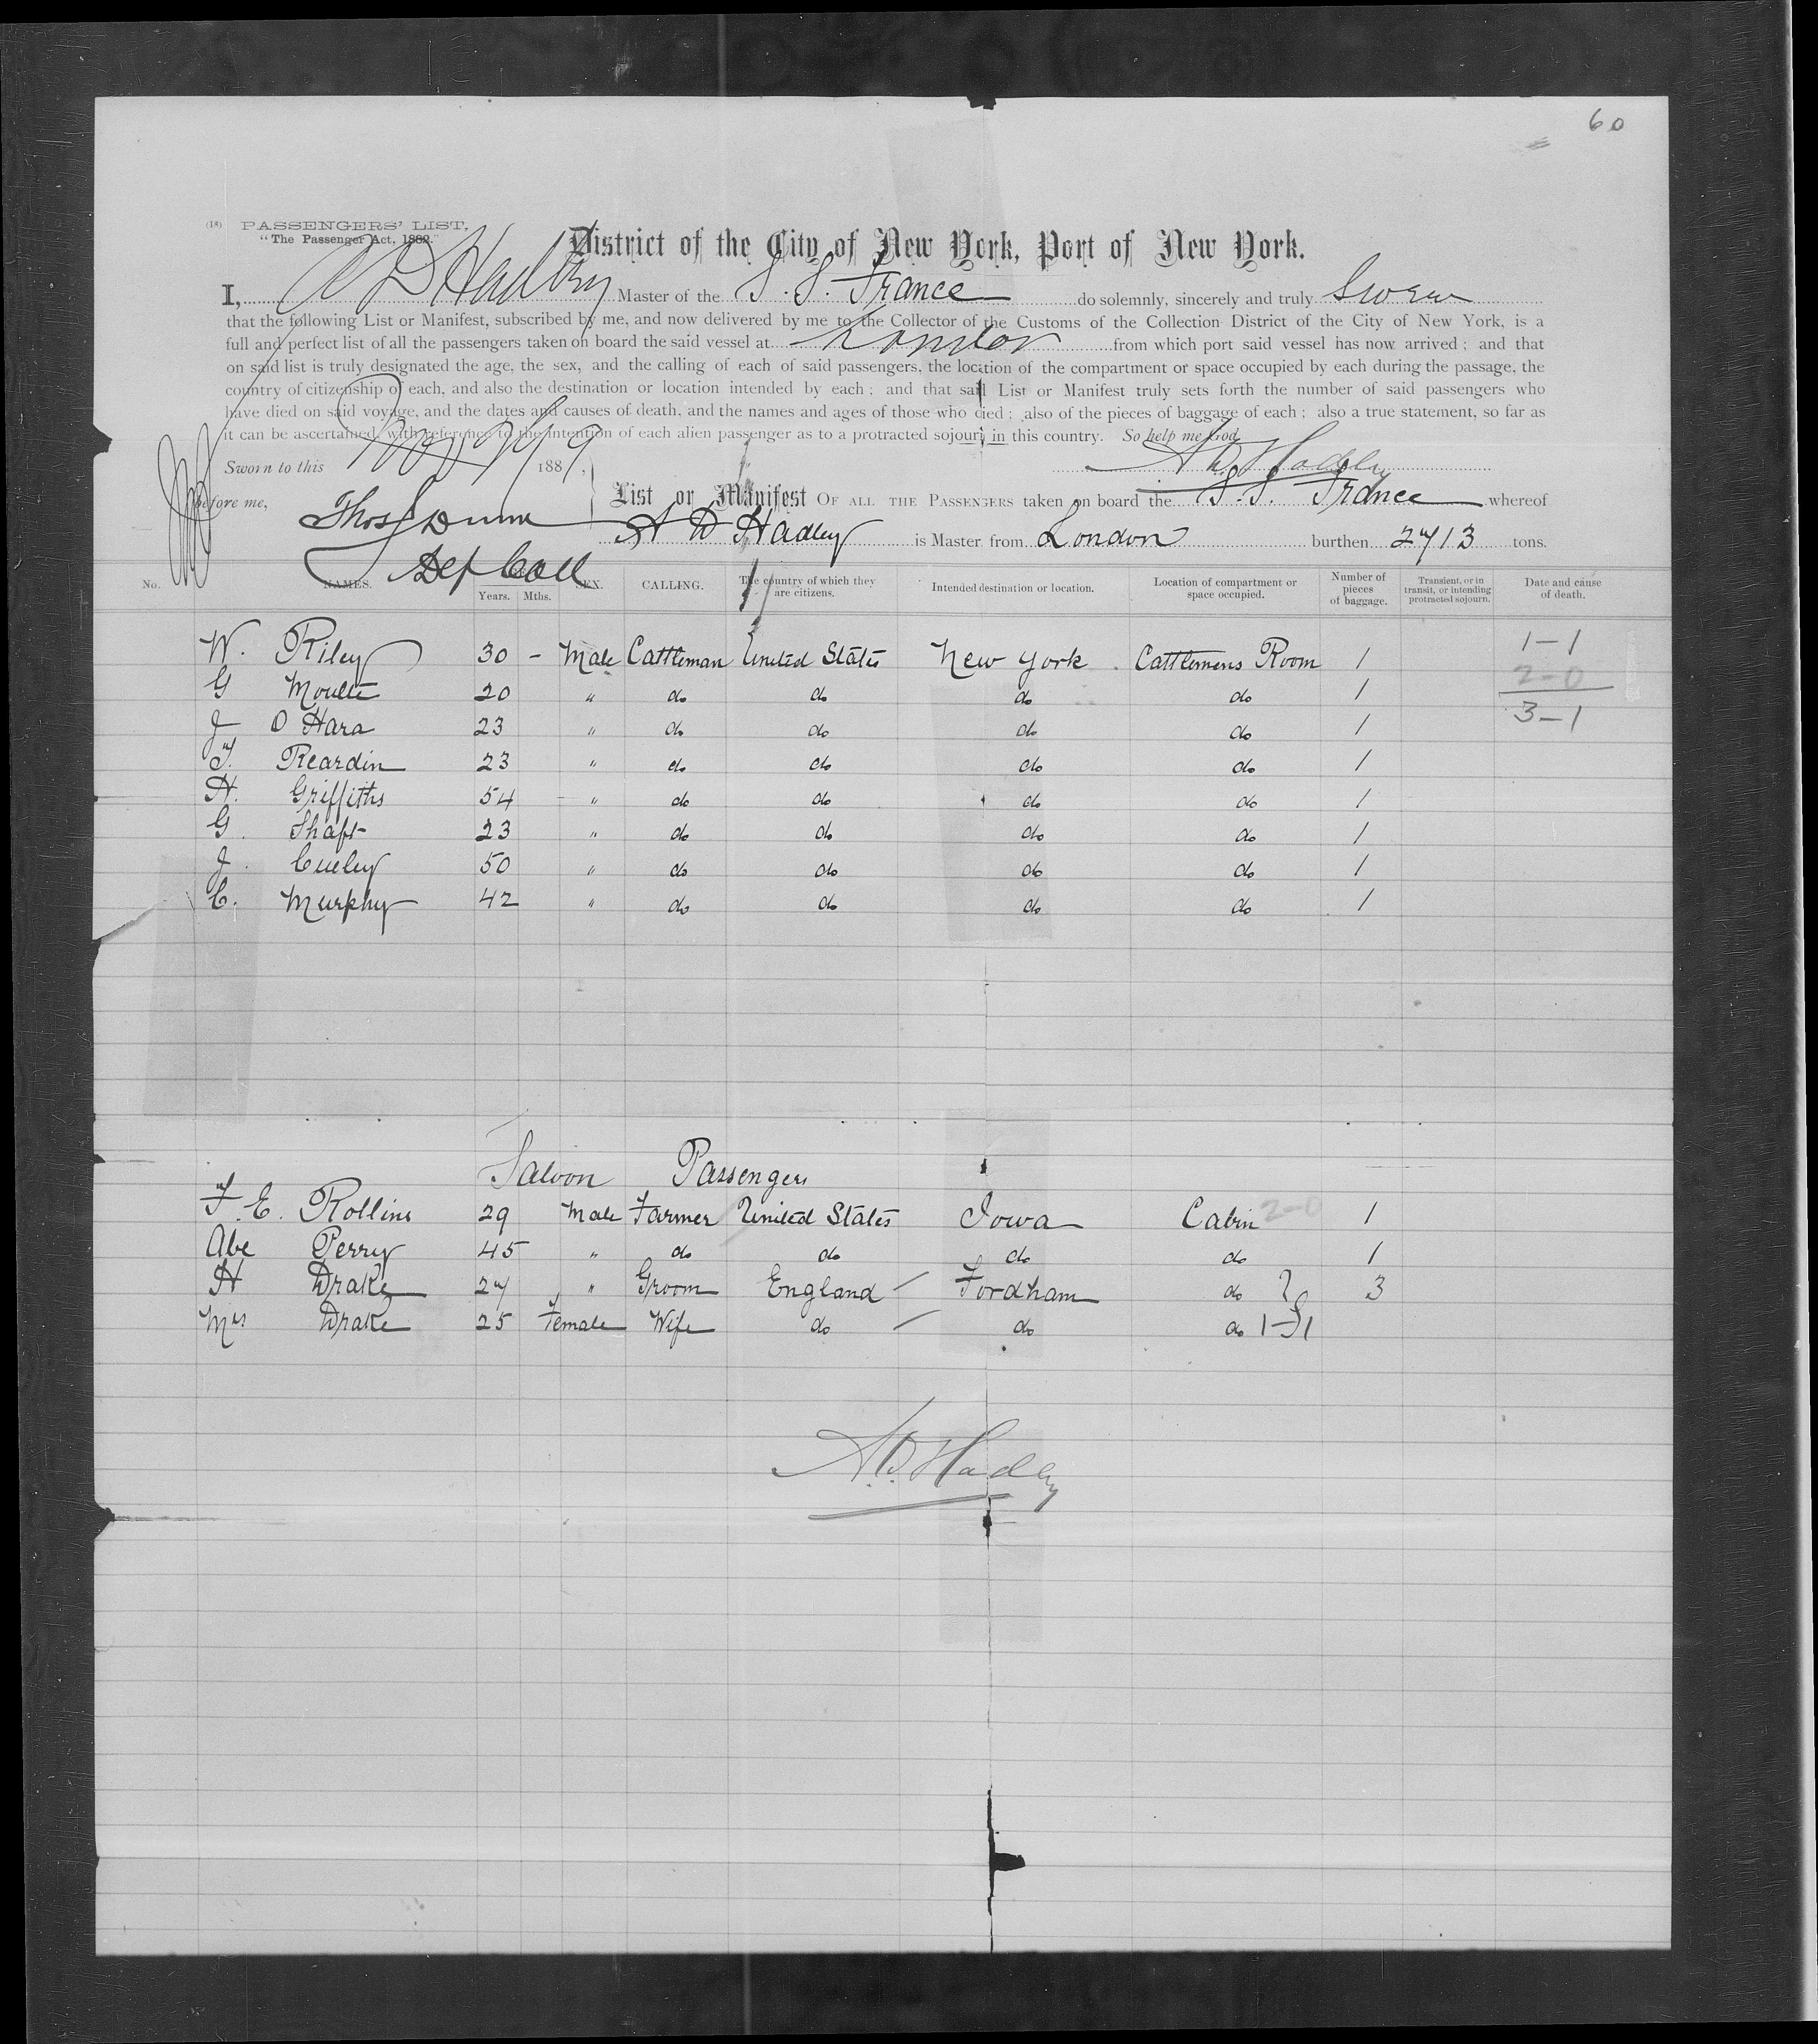 60
(18) PASSENGERS' LIST,
"The Passenger Act, 1882."
District of the City of New York, Port of New York.
I, A D Hadley Master of the S. S. France do solemnly, sincerely and truly Swear
that the following List or Manifest, subscribed by me, and now delivered by me to the Collector of the Customs of the Collection District of the City of New York, is a
full and perfect list of all the passengers taken on board the said vessel at London from which port said vessel has now arrived ; and that
on said list is truly designated the age, the sex, and the calling of each of said passengers, the location of the compartment or space occupied by each during the passage, the
country of citizenship of each, and also the destination or location intended by each ; and that said List or Manifest truly sets forth the number of said passengers who
have died on said voyage, and the dates and causes of death, and the names and ages of those who died ; also of the pieces of baggage of each ; also a true statement, so far as
it can be ascertained, with reference to the intention of each alien passenger as to a protracted sojourn in this country. So help me God
Sworn to this 1889, A D Hadley
before me, Thos J Dunn
List or Manifest OF ALL THE PASSENGERS taken on board the S. S. France whereof
A D Hadley is Master from London burthen 2713 tons.
Dep Coll
No. NAMES. Years. Mths. SEX. CALLING. The country of which they are citizens. Intended destination or location. Location of compartment or space occupied. Number of pieces of baggage. Transient, or in transit, or intending protracted sojourn. Date and cause of death.
W. Riley 30 – Male Cattleman United States New York Cattlemens Room 1 1–1
G Moulte 20 " do do do do 1 2–0
J O Hara 23 " do do do do 1 3–1
T. Reardin 23 " do do do do 1
H. Griffiths 54 – " do do do do 1
G. Shaft 23 " do do do do 1
J. Cueley 50 " do do do do 1
C. Murphy 42 " do do do do 1
Saloon Passengers
F. E. Rollins 29 Male Farmer United States Iowa Cabin 2–0 1
Abe Perry 45 " do do do do 1
H Drake 27 " Groom England Fordham do 3
Mrs Drake 25 Female Wife do do do 1–1
A D. Hadley